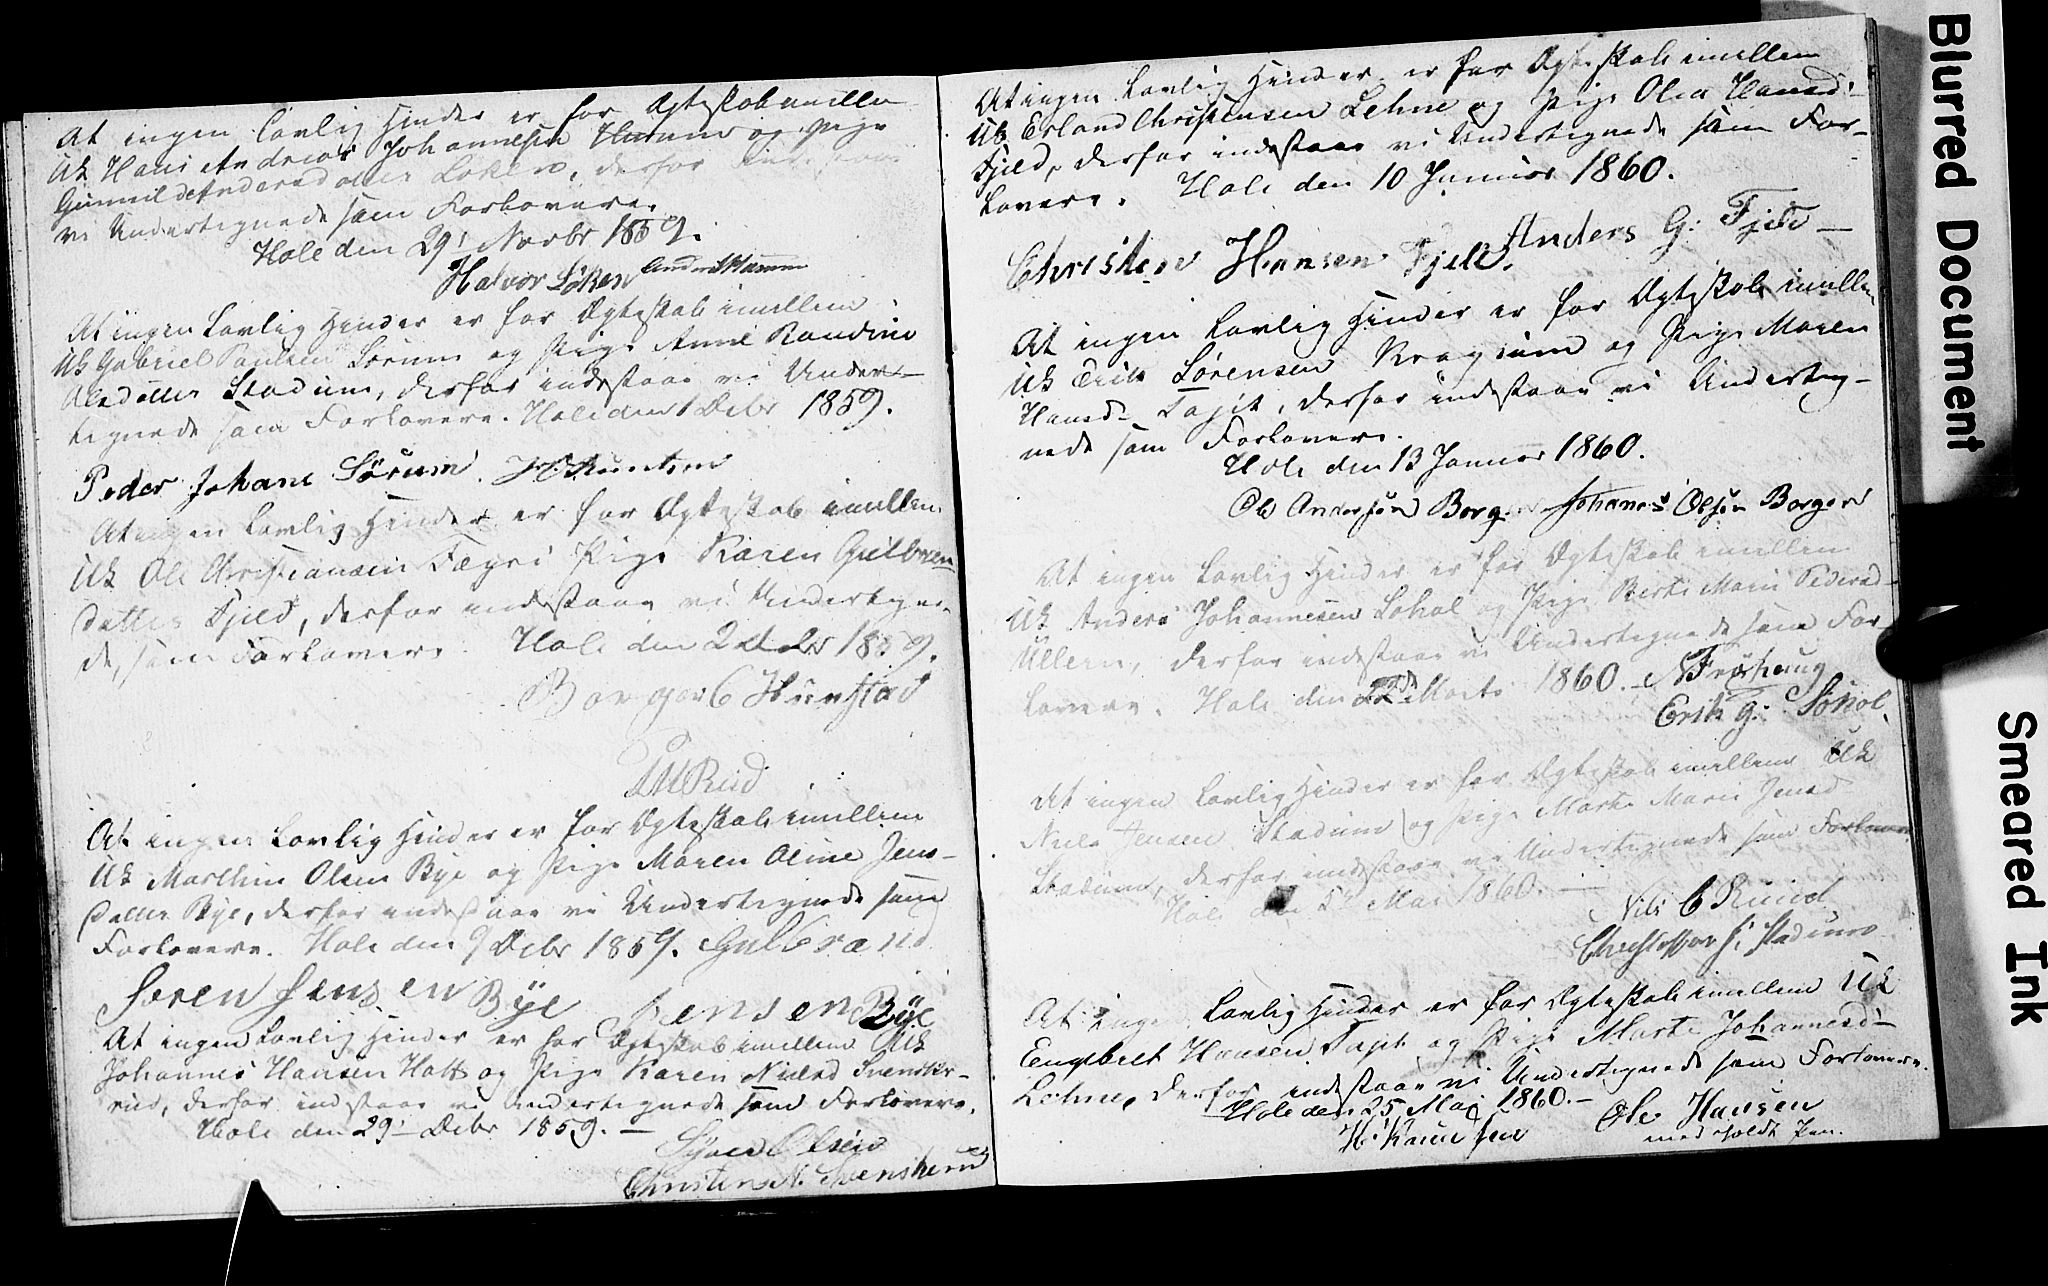 At ingen Lovlig Hinder er for Ægteskab imellem
Uk Hans Andreas Johannesen Hamm og Pige
Gunnild Andersdatter Løken, derfor inde staae
vi Undertegnede som Forlovere.
Hole den 29' Novbr 1859.
Halvor Løken Anders Hamm
At ingen Lovlig Hinder er for Ægteskab imellem
Uk Gabriel Paulsen Sørum og Pige Anne Randine
Olsdatter Stadum, derfor indestaae vi Under-
tegnede som Forlovere. Hole den 1 Debr 1859.
Peder Johans Sørum. H Knutsen
At ingen Lovlig Hinder er for Ægteskab imellem
Uk Ole Christiansen Fægri Pige Karen Gulbran
datter Fjeld, derfor indestaae vi Undertegne-
de, som Forlovere Hole den 2 Debr 1859.
Borger C Hunstad
Ruud
At ingen Lovlig Hinder er for Ægteskab imellem
Uk Marthin Olsen Bye og Pige Maren Oline Jens-
datter Bye, derfor indestaae vi Undertegnede som
Forlovere. Hole den 9 Debr 1859. Gulbrand
Søren Jensen Bye Jensen Bye
At ingen Lovlig Hinder er for Ægteskab imellem Uk
Johannes Hansen Halt og Pige Karen Nielsd Svenske-
rud, derfor indstaae vi undertegnede som Forlovere.
Hole den 29' Debr 1859. —
Syver Olsen
Christen N. Svenskerud
At ingen Lovlig Hinder er for Ægteskab imellem
Uk Erland Christensen Lehne og Pige Olea Hansd:
Fjeld, derfor indestaae vi Undertegnede som For-
lovere. Hole den 10 Januar 1860.
Christen Hansen Fjeld. Anders G: Fjeld —
At ingen Lovlig Hinder er for Ægteskab imellem
Uk Erik Sørensen Krogsrud og Pige Maren
Hansd- Fagst, derfor indestaae vi Underteg-
nede som Forlovere.
Hole den 13 Januar 1860.
Ole Andersen Borg. Johannes Olsen Borgen
At ingen Lovlig Hinder er for Ægteskab imellem
Uk Anders Johannesen Søhol og Pige Berte Marie Pedersd-
Ullern, derfor indestaae vi Undertegnede som For-
lovere. Hole den 22de Marts 1860. — N Frøshaug
Erik G: Søhol.
At ingen Lovlig Hinder er for Ægteskab imellem Uk
Niels Jensen Stadum og Pige Marte Marie Jensd
Stadum, derfor indestaae vi Undertegnede som Forlovere
Hole den Mai 1860. —
Nils C Ruud
Christoffer J: Stadum
At ingen Lovlig Hinder er for Ægteskab imellem Uk
Engebret Hansen Fagst og Pige Marte Johannesd-
Lehne, derfor indestaae vi Undertegnede som Forlovere.
Hole den 25 Mai 1860. — Ole Hansen
H: Knudsen med holdt Pen.
Blurred Document
Smeared Ink